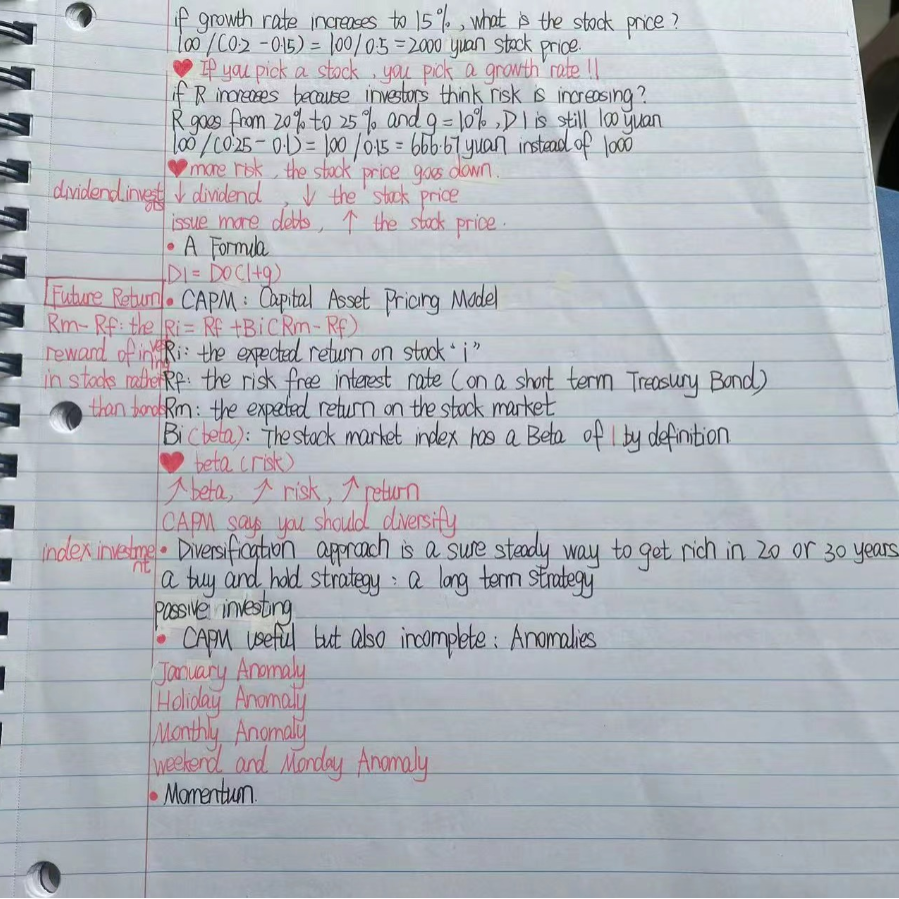 if growth rate increases to 15%, what is the stock price?
100/(0.2-0.15) = 100/0.5=2000 yuan stock price.
♥ If you pick a stock, you pick a growth rate!!
if R increases because investors think risk is increasing?
R goes from 20% to 25% and g=10%, D1 is still 100 yuan
100/(0.25-0.1) = 100/0.15 = 666.67 yuan instead of 1000
♥ more risk, the stock price goes down.
dividend invest ↓ dividend, ↓ the stock price
issue more debts, ↑ the stock price.
• A Formula
D1 = D0(1+g)
Future Return • CAPM: Capital Asset Pricing Model
Rm-Rf: the Ri = Rf + Bi(Rm-Rf)
reward of Ri: the expected return on stock "i"
in stocks rather Rf: the risk free interest rate (on a short term Treasury Bond)
than bonds Rm: the expected return on the stock market
Bi (beta): The stock market index has a Beta of 1 by definition
♥ beta (risk)
↑ beta, ↑ risk, ↑ return
CAPM says you should diversify
index investment • Diversification approach is a sure steady way to get rich in 20 or 30 years
a buy and hold strategy: a long term strategy
passive investing
• CAPM useful but also incomplete: Anomalies
January Anomaly
Holiday Anomaly
Monthly Anomaly
weekend and Monday Anomaly
• Momentum.